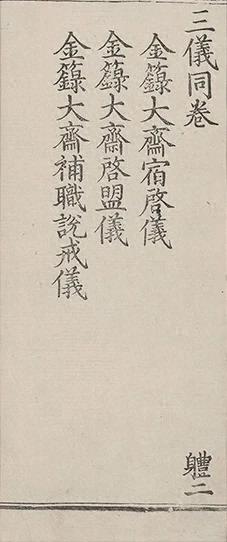 三儀同卷
體二
金籙大齋宿啓儀
金籙大齋啓盟儀
金籙大齋補職說戒儀